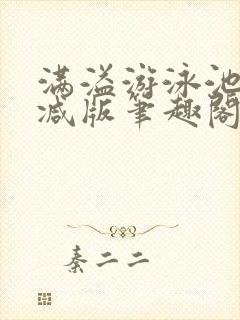 满溢游泳池
减版笔趣阁
秦二二